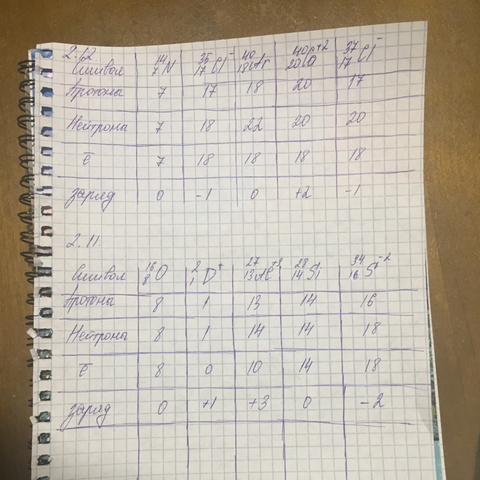 2.12
Символ ¹⁴₇N ³⁵₁₇Cl⁻ ⁴⁰₁₈Ar ⁴⁰₂₀Ca⁺² ³⁷₁₇Cl⁻
Протоны 7 17 18 20 17
Нейтроны 7 18 22 20 20
ē 7 18 18 18 18
заряд 0 -1 0 +2 -1
2.11.
Символ ¹⁶₈O ²₁D⁺ ²⁷₁₃Al⁺³ ²⁸₁₄Si ³⁴₁₆S⁻²
Протоны 8 1 13 14 16
Нейтроны 8 1 14 14 18
ē 8 0 10 14 18
заряд 0 +1 +3 0 -2